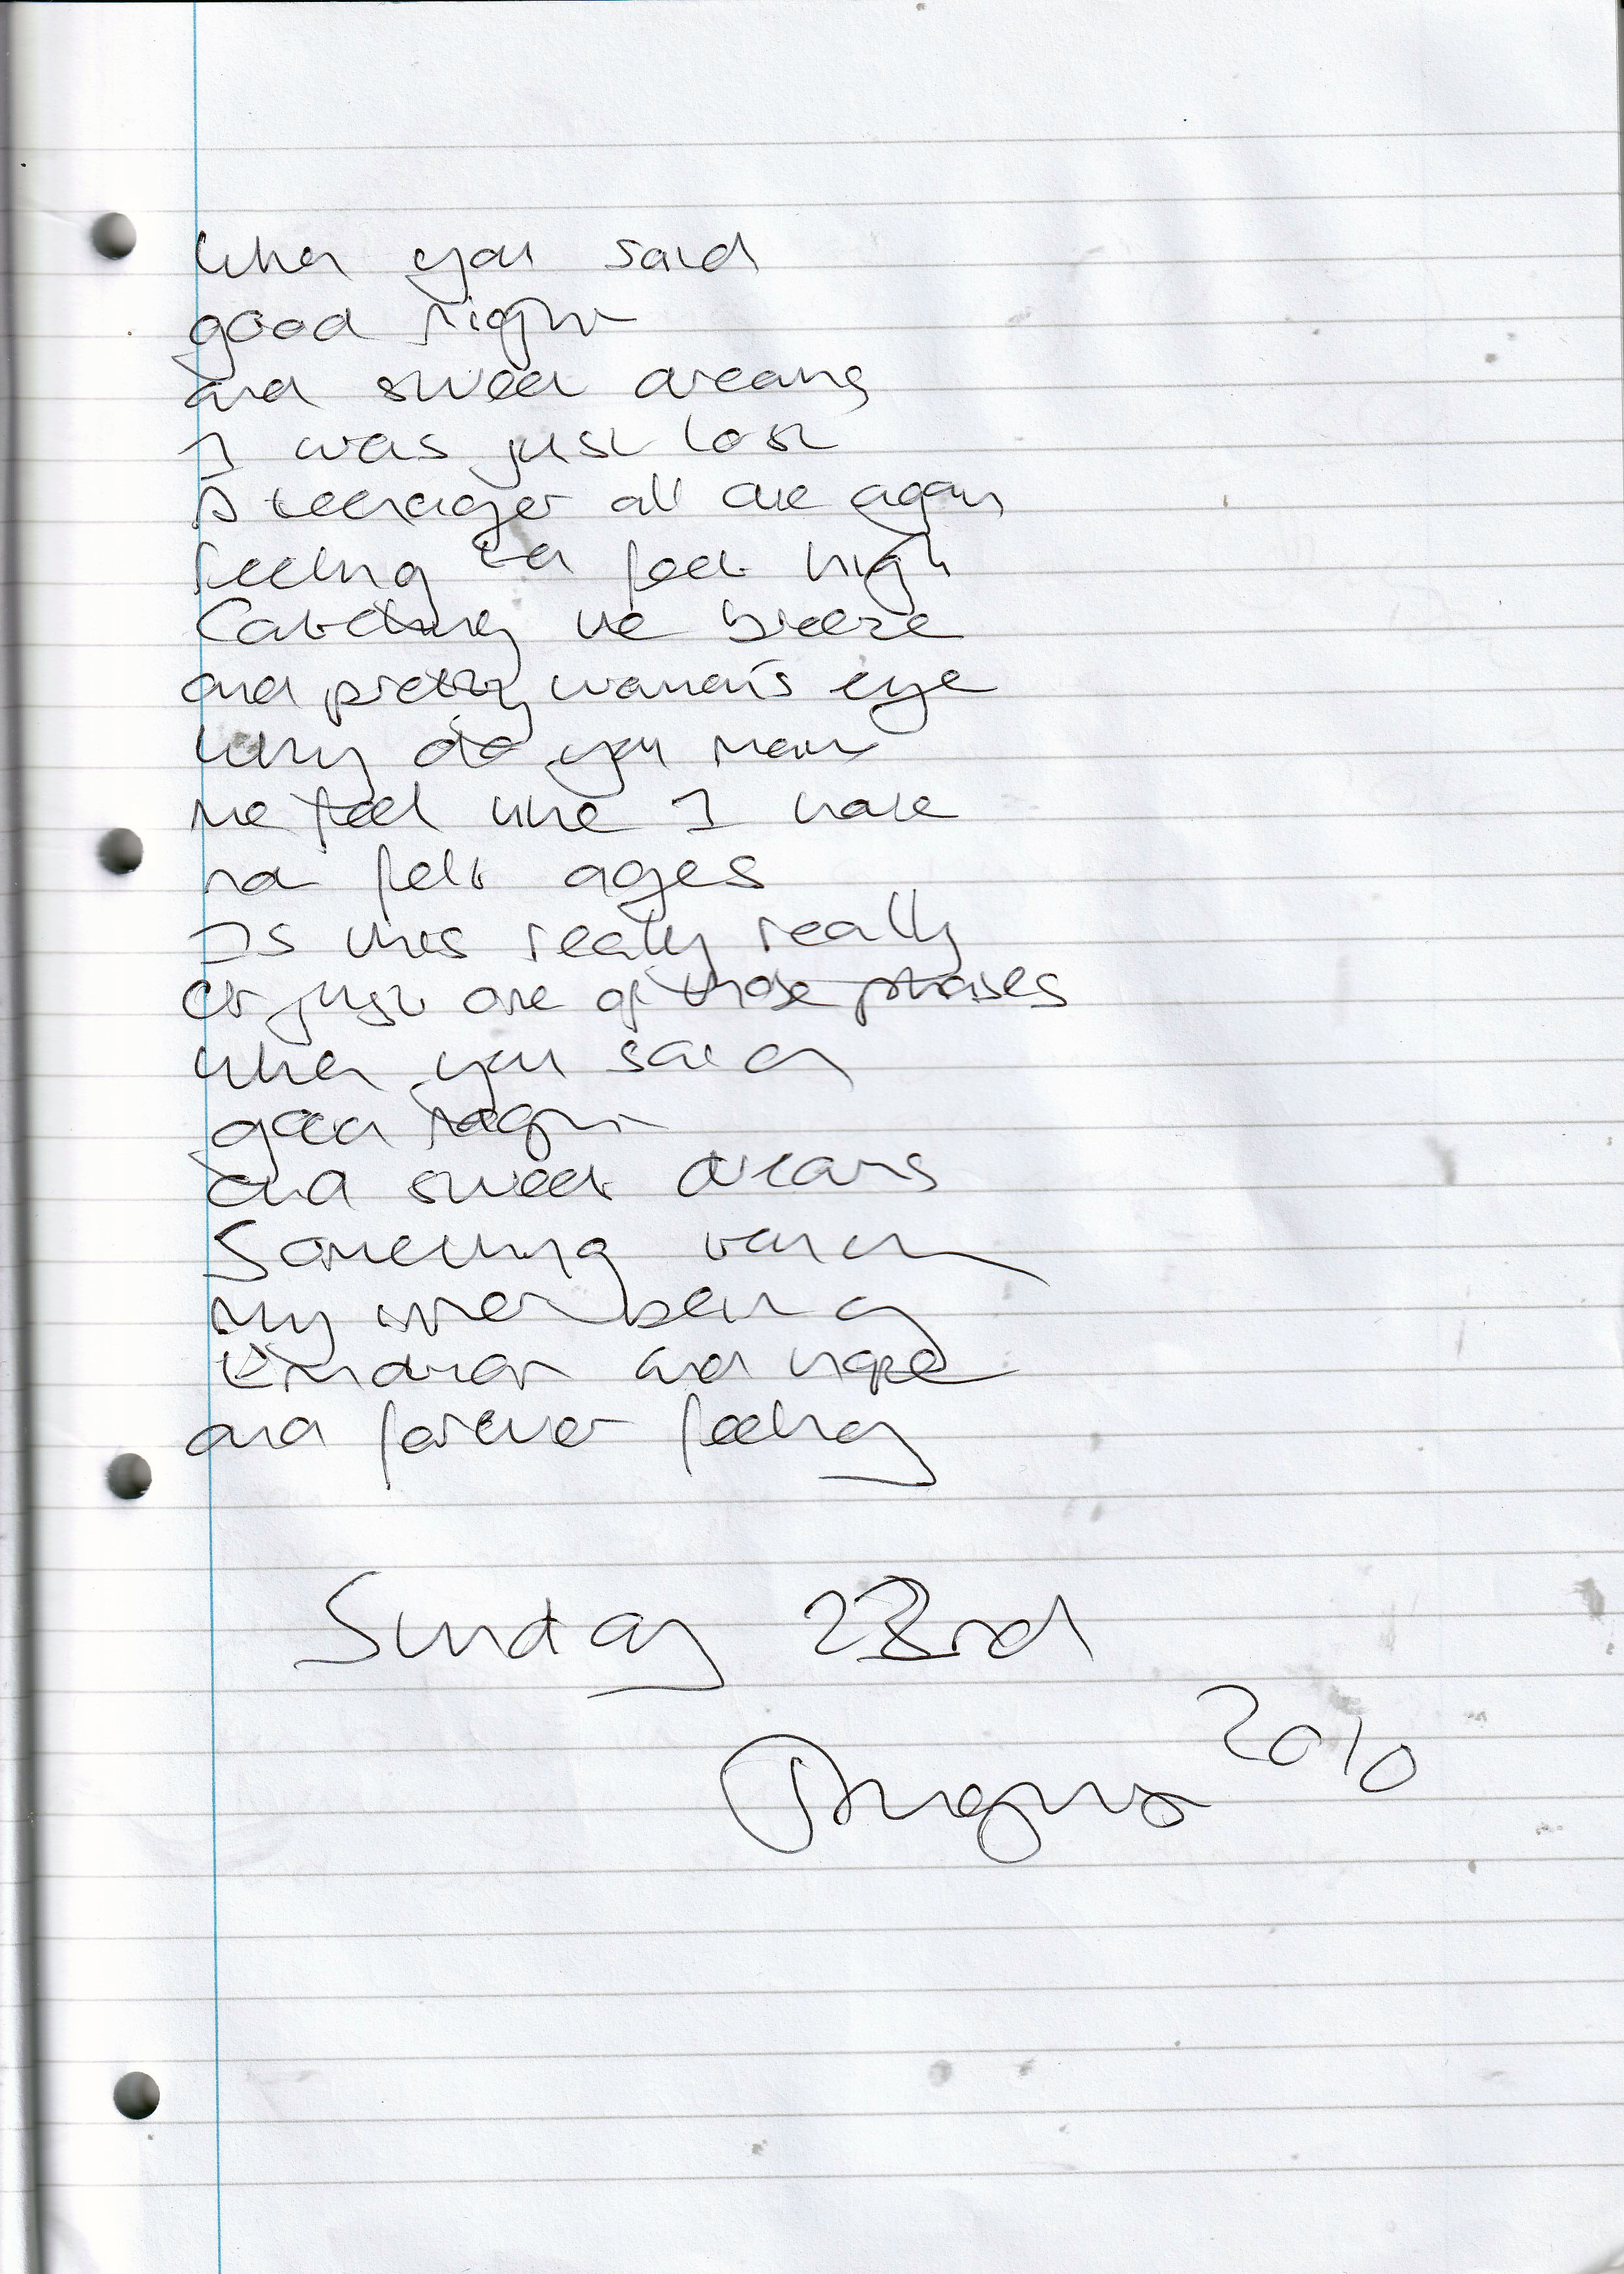 When you said
good night
and sweet dreams
I was just lost
A teenager all over again
feeling ten feet high
Catching the breeze
and pretty women's eye
Why do you make
me feel like I have
not felt ages
Is this really really
Or just one of those phases
When you said
good night
and sweet dreams
Something warm
My inner being
and hope
and forever feeling
Sunday 23rd
2010